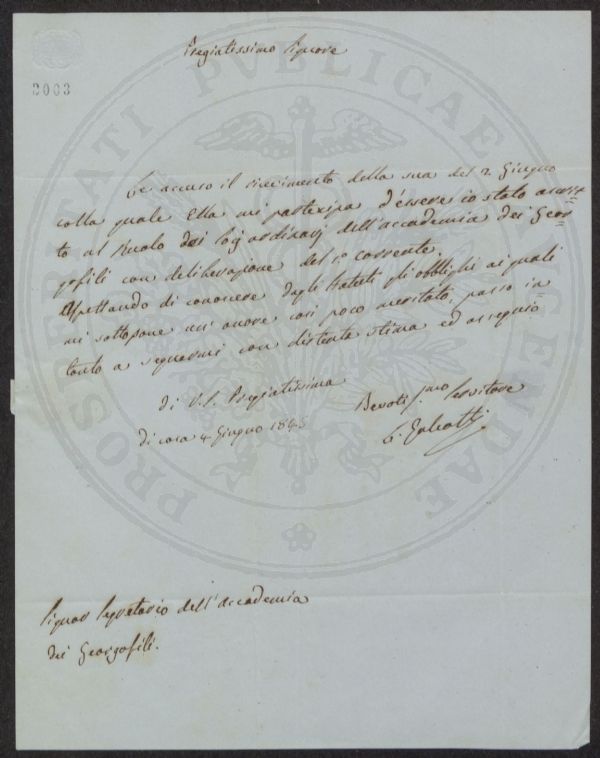 Pregiatissimo Signore
3003
Le accuso il ricevimento della sua del 2 Giugno
colla quale Ella mi partecipa d'essere io stato ascrit=
to al Ruolo dei Soci ordinarj dell'accademia dei Geor=
gofili con deliberazione del 1° corrente.
Aspettando di conoscere dagli Statuti gli obblighi ai quali
mi sottopone un onore così poco meritato, passo in
tanto a segnarmi con distinta stima ed ossequio
di V.S. Pregiatissima
Devotis.mo Servitore
di casa 4 Giugno 1845
G.
Signor Segretario dell'accademia
dei Georgofili.
PROSPERITATI PVBLICAE AVGENDAE